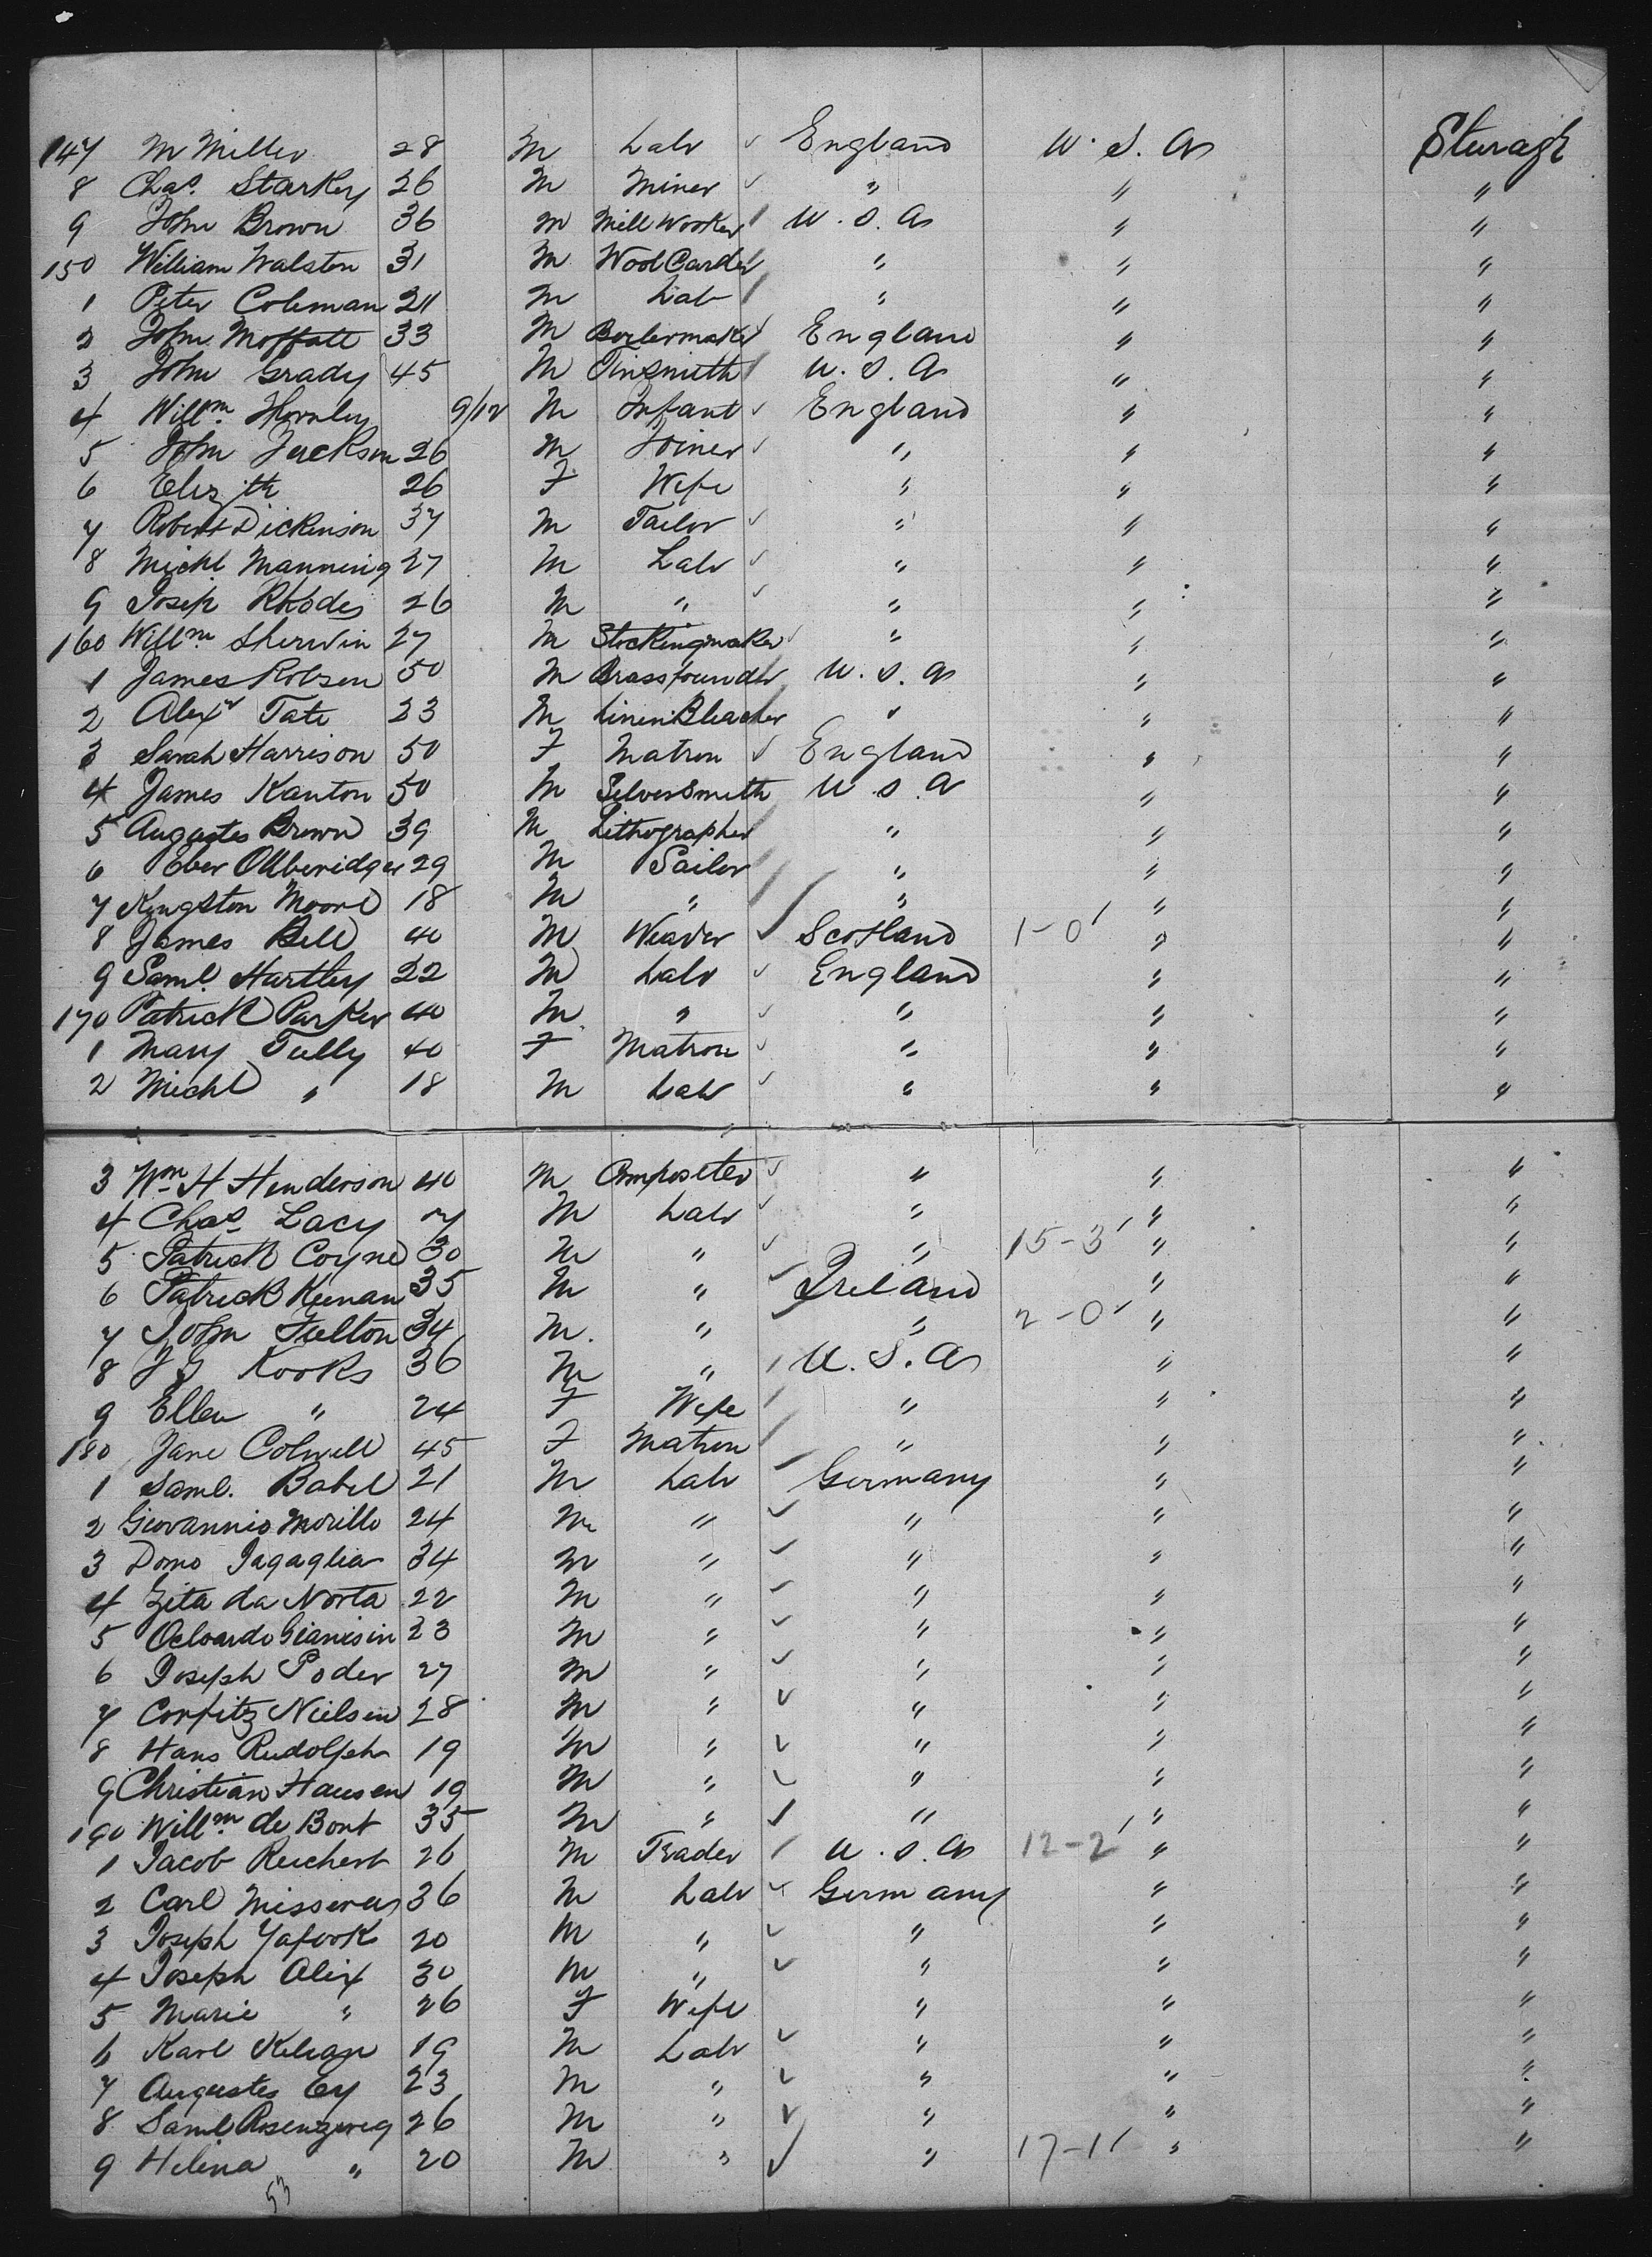 147 M Miller 28 M Labr England U.S.A Steerage
8 Chas. Starkey 26 M Miner " " "
9 John Brown 36 M Mill Worker U.S.A " "
150 William Walston 31 M Wool Carder " " "
1 Peter Coleman 21 M Labr " " "
2 John Moffatt 33 M Boilermaker England " "
3 John Grady 45 M Tinsmith U.S.A " "
4 Willm. 9/12 M Infant England " "
5 John Jackson 26 M Joiner " " "
6 Elizth 26 F Wife " " "
7 Robert Dickinson 37 M Tailor " " "
8 Michl Manning 27 M Labr " " "
9 Joseph Rhodes 26 M " " " "
160 Willm. Sherwin 27 M Stockingmaker " " "
1 James Robson 50 M Brassfounder U.S.A " "
2 Alexr Tate 23 M Linen Bleacher " " "
3 Sarah Harrison 50 F Matron England " "
4 James Kanton 50 M Silversmith U.S.A " "
5 Augustes Brown 39 M Lithographer " " "
6 Eber 29 M Sailor " " "
7 Kingston Moore 18 M " " " "
8 James Bell 40 M Weaver Scotland 1-0 " "
9 Saml. Hartley 22 M Labr England " "
170 Patrick Parker 40 M " " " "
1 Mary Tully 40 F Matron " " "
2 Michl " 18 M Labr " " "
3 Wm H Henderson 40 M Compositer " " "
4 Chas. Lacy M Labr " " "
5 Patrick Coyne 30 M " " 15-3 " "
6 Patrick Keenan 35 M " Ireland " "
7 John Fulton 34 M. " " 2-0 " "
8 Kooks 36 M " U.S.A " "
9 Ellen " 24 F Wife " " "
180 Jane Colwell 45 F Matron " " "
1 Saml. Babel 21 M Labr Germany " "
2 Giovannio Morillo 24 M " " " "
3 Domo 34 M " " " "
4 Zita da Norta 22 M " " " "
5 23 M " " " "
6 Joseph Poder 27 M " " " "
7 Corfitz Nielsen 28 M " " " "
8 Hans Rudolph 19 M " " " "
9 Christian Hansen 19 M " " " "
190 Willm. de Bont 35 M " " " "
1 Jacob Reichert 26 M Trader U.S.A 12-2 " "
2 Carl 36 M Labr Germany " "
3 Joseph 20 M " " " "
4 Joseph Alix 30 M " " " "
5 Marie " 26 F Wife " " "
6 Karl 19 M Labr " " "
7 Augustes Ey 23 M " " " "
8 Saml Rosenzweig 26 M " " " "
9 Helena " 20 M " " 17-1 " "
53